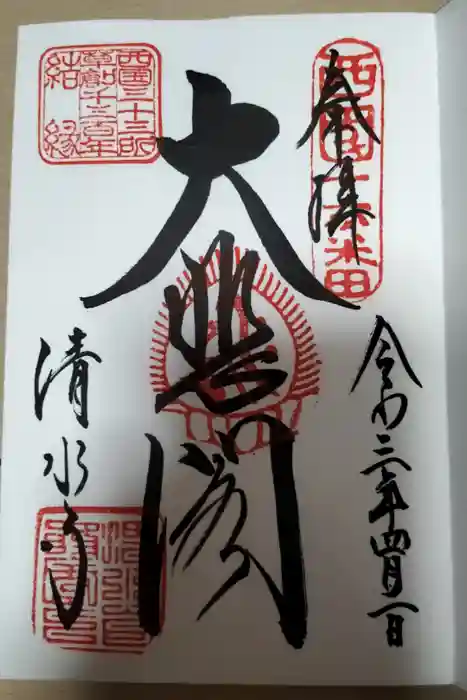 奉拝
西國十六番
令和三年四月一日
大悲閣
西國三十三所
草創千三百年
結縁
清水寺